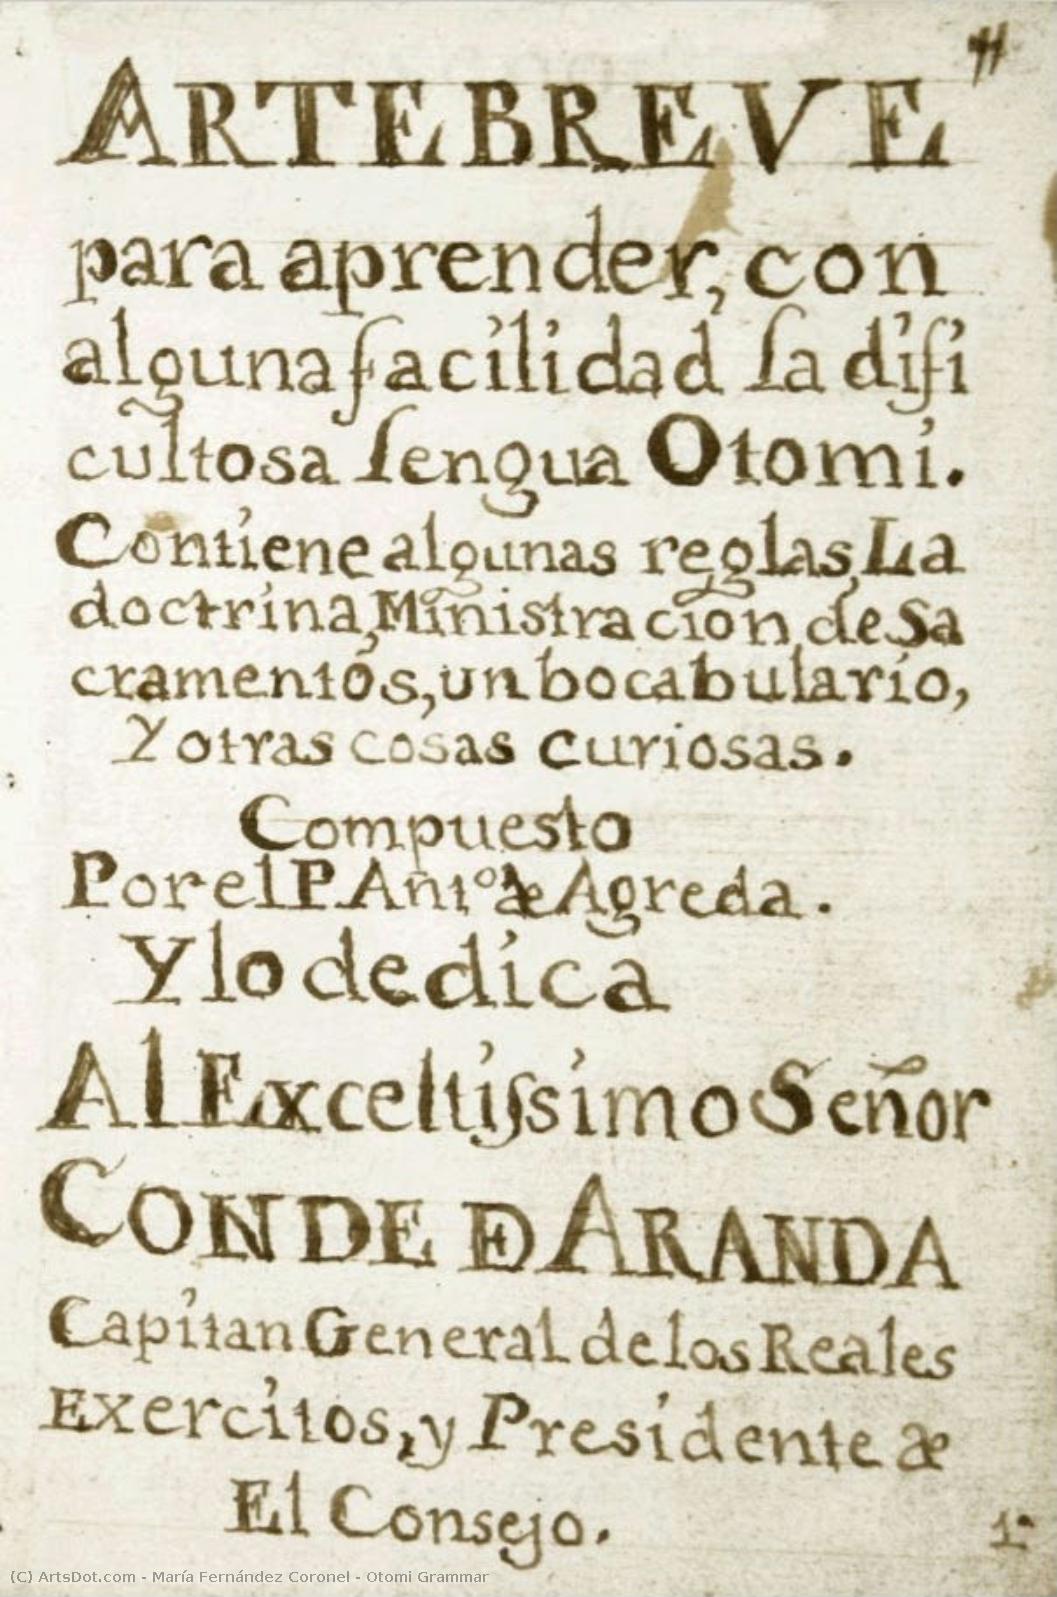 ARTE BREVE
para aprender, con
alguna facilidad la difi
cultosa lengua Otomi.
Contiene algunas reglas, La
doctrina, Ministracion de Sa
cramentos, un bocabulario,
Y otras cosas curiosas.
Compuesto
Por el P. Antº de Agreda.
Y lo dedica
Al Exceltissimo Señor
CONDE DE ARANDA
Capitan General de los Reales
Exercitos, y Presidente de
El Consejo.
(C) ArtsDot.com - María Fernández Coronel - Otomi Grammar